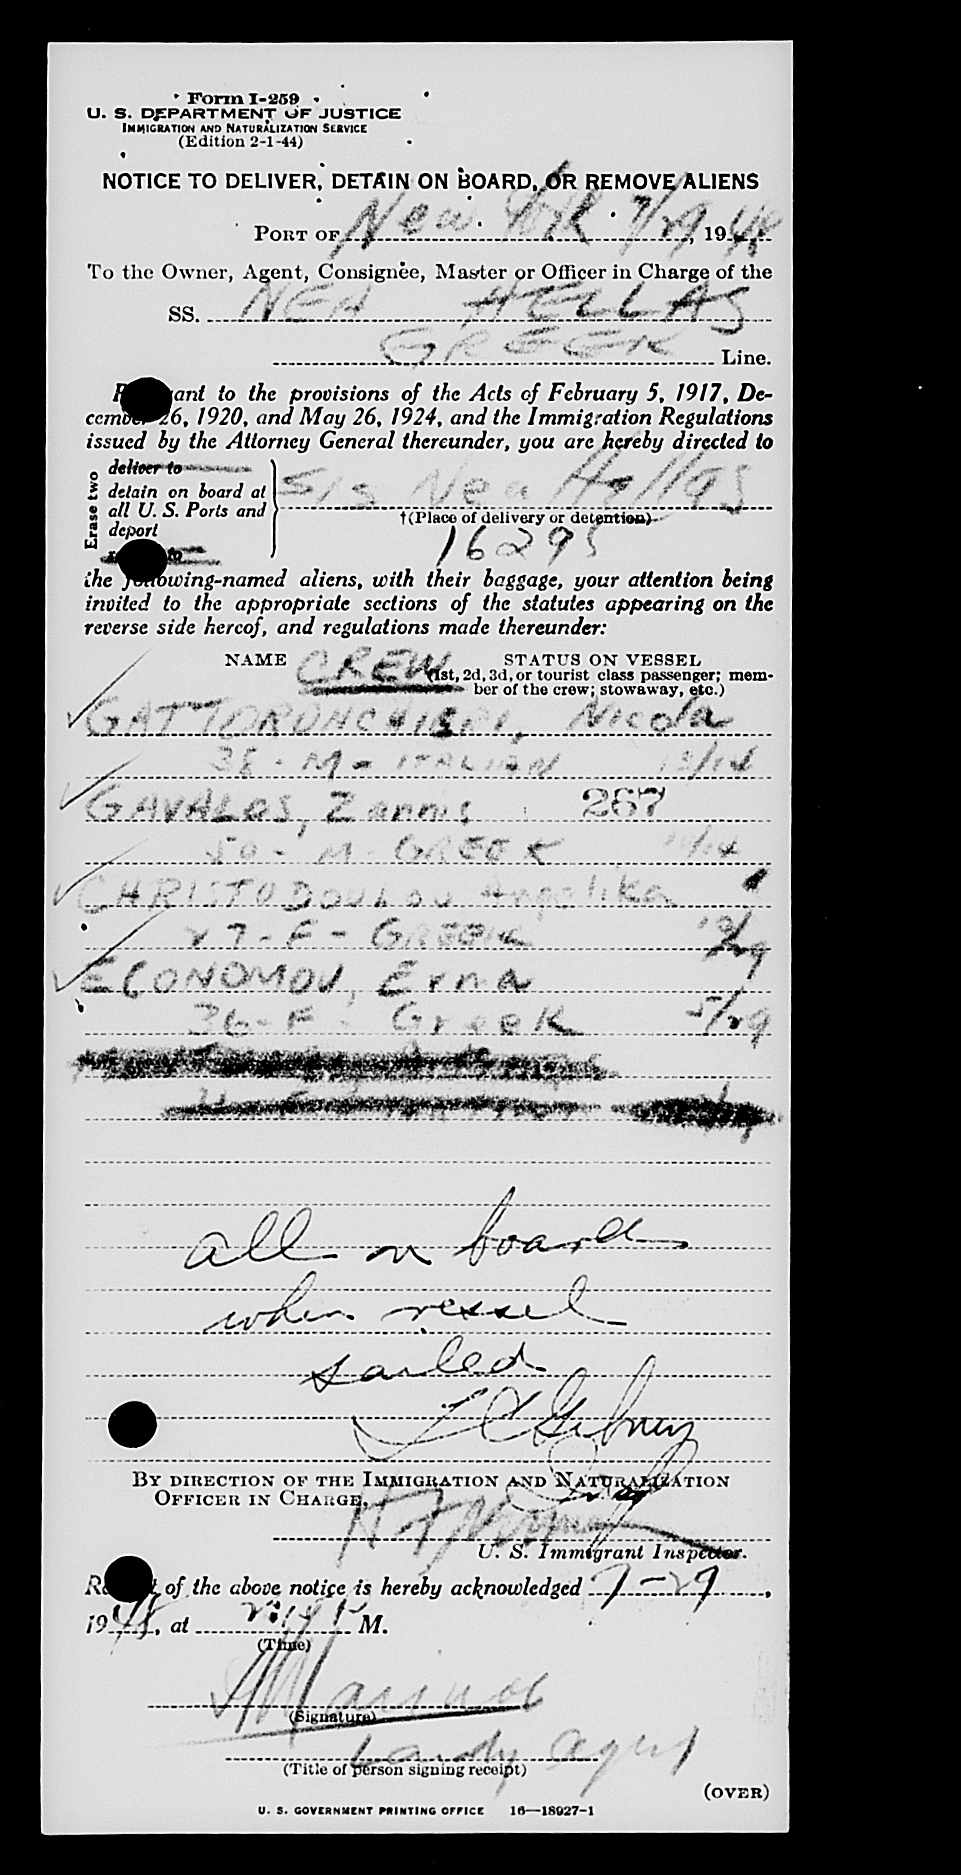 Form I-259
U. S. DEPARTMENT OF JUSTICE
IMMIGRATION AND NATURALIZATION SERVICE
(Edition 2-1-44)
NOTICE TO DELIVER, DETAIN ON BOARD, OR REMOVE ALIENS
PORT OF New York 7/29, 1948
To the Owner, Agent, Consignee, Master or Officer in Charge of the
SS. NEA HELLAS
GREEK Line.
Pursuant to the provisions of the Acts of February 5, 1917, De-
cember 26, 1920, and May 26, 1924, and the Immigration Regulations
issued by the Attorney General thereunder, you are hereby directed to
Erase two
deliver to
detain on board at
all U. S. Ports and
deport
to
S/S Nea Hellas
†(Place of delivery or detention)
16295
the following-named aliens, with their baggage, your attention being
invited to the appropriate sections of the statutes appearing on the
reverse side hereof, and regulations made thereunder:
NAME CREW STATUS ON VESSEL
(1st, 2d, 3d, or tourist class passenger; mem-
ber of the crew; stowaway, etc.)
GATTORONCHIERI, Nicola
38 - M - ITALIAN 13/14
GAVALOS, Zannis 267
50 - M - GREEK
CHRISTODOULOU Angelika
27 - F - GREEK
ECONOMOU, Erna
36 - F - Greek 5/29
all on board
when vessel
sailed
BY DIRECTION OF THE IMMIGRATION AND NATURALIZATION
OFFICER IN CHARGE,
U. S. Immigrant Inspector.
Receipt of the above notice is hereby acknowledged 7-29,
1948, at M.
(Time)
(Signature)
Landg agent
(Title of person signing receipt)
(OVER)
U. S. GOVERNMENT PRINTING OFFICE 16—18927-1